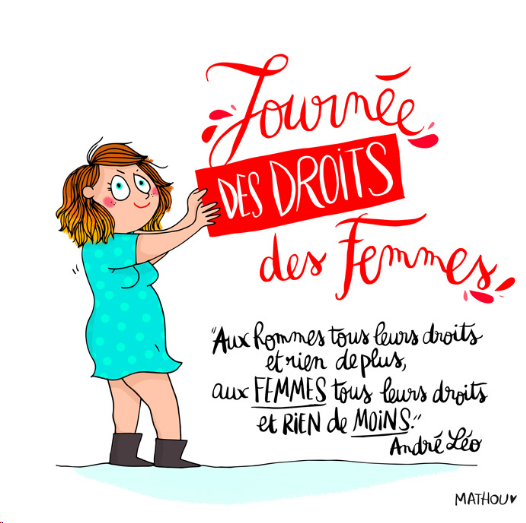 Journée
DES DROiTS
des Femmes
"Aux hommes tous leurs droits
et rien de plus,
aux FEMMES tous leurs droits
et RiEN de MOiNS."
André Léo
MATHOU